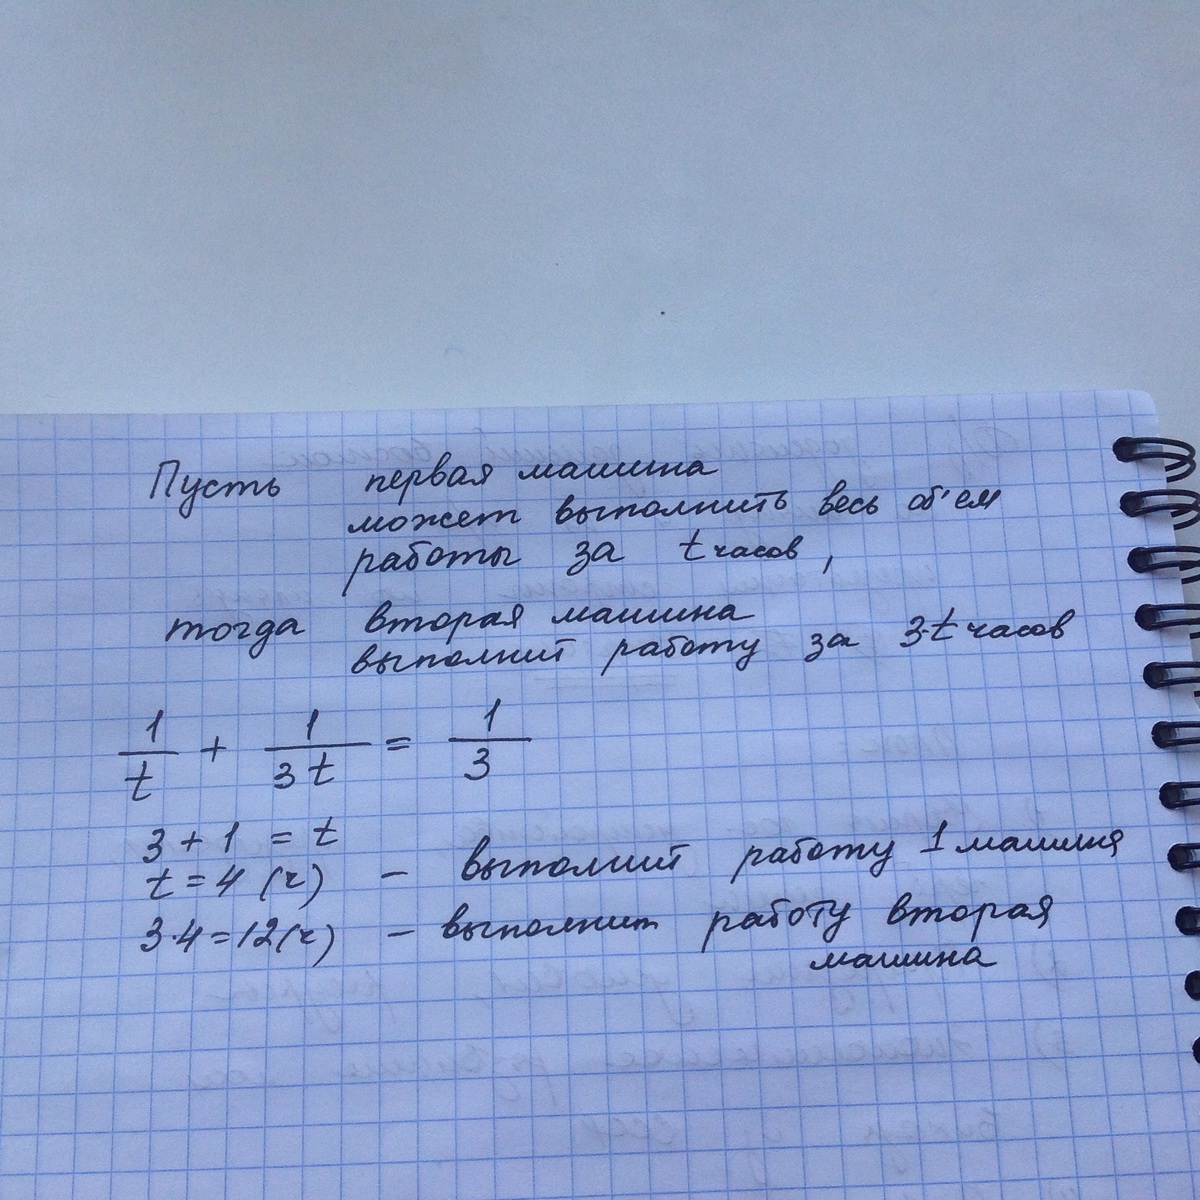 Пусть первая машина
может выполнить весь об'ем
работы за t часов,
тогда вторая машина
выполнит работу за 3·t часов
1/t + 1/3t = 1/3
3 + 1 = t
t = 4 (ч) – выполнит работу 1 машина
3·4=12(ч) – выполнит работу вторая
машина